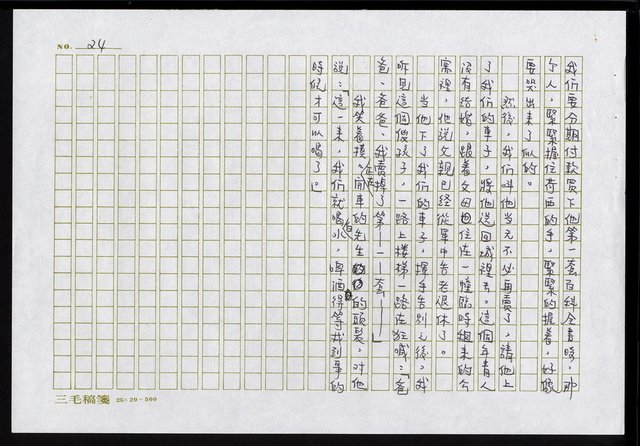 NO. 24
我們要分期付款買下他第一套百科全書時，那
個人，緊緊握住荷西的手，緊緊的握著，好像
要哭出來了似的。
然後，我們叫他當天不必再賣了，請他上
了我們的車子，將他送回城裡去。這個年青人
沒有結婚，跟著父母住在一幢臨時租來的公
寓裡，他說父親已經從軍中告老退休了。
當他下了我們的車子，揮手告別之後，我
聽見這個傻孩子，一路上樓梯一路在狂喊：「爸
爸、爸爸，我賣掉了第一一一套——」
我笑著摸摸開車的先生的頭髮，對他
說：「這一來，我們就喝白水，啤酒得等我到事的
時候才可以喝了。」
三毛稿箋 25×20=500